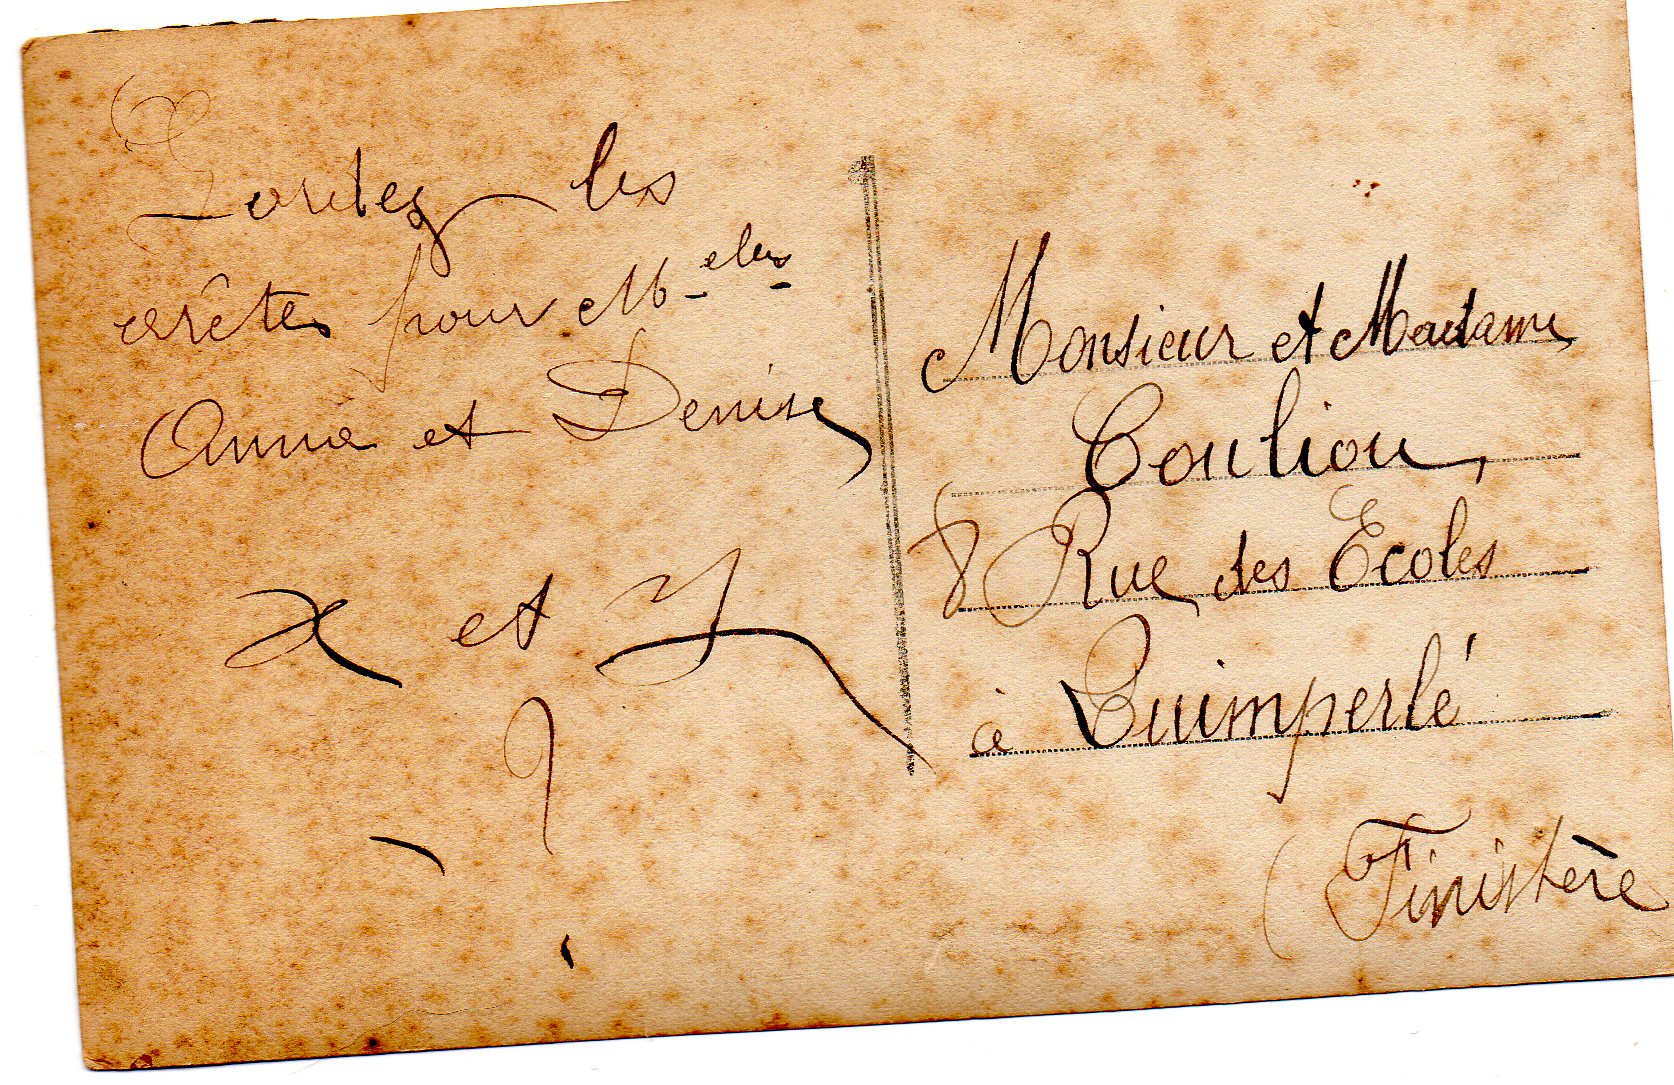 Gardez les
arêtes pour Melles
Annie et Denise
X et Y
?
Monsieur et Madame
Couliou,
8 Rue des Ecoles
à Quimperlé
(Finistère